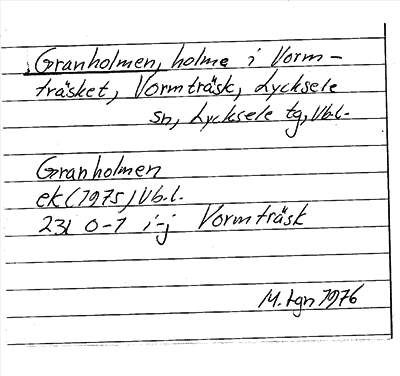 Granholmen, holme i Vorm-
träsket, Vormträsk, Lycksele
sn, Lycksele tg, Vb.l.
Granholmen
ek (1975) Vb.l.
23i 0-1 i-j Vormträsk
M. tgn 1976